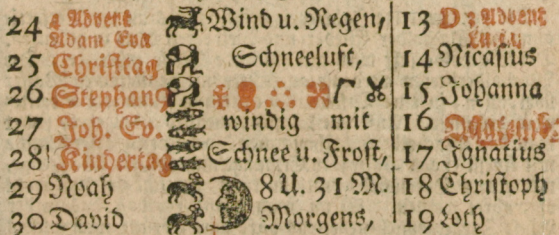 24 4 Advent Adam Eva Wind u. Regen, 13 D 3 Advent
25 Christtag Schneeluft, 14 Nicasius
26 Stephan9 15 Johanna
27 Joh. Ev. windig mit 16
28 Kindertag Schnee u. Frost, 17 Ignatius
29 Noah 8 U. 31 M. 18 Christoph
30 David Morgens, 19 Loth